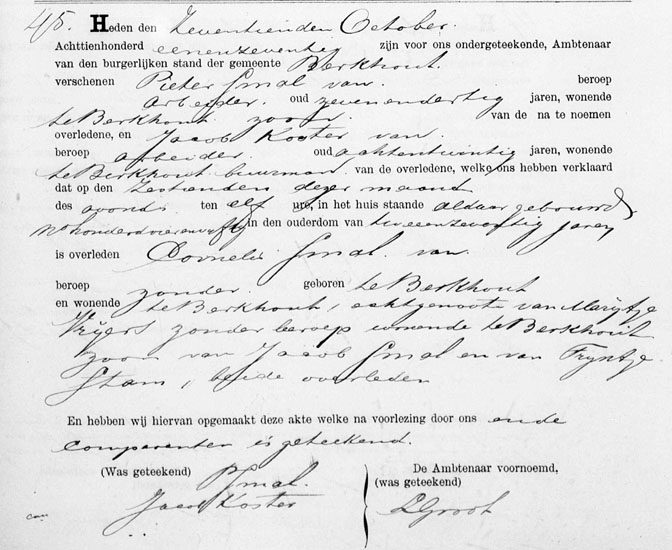 45. Heden den Zeventienden October.
Achttienhonderd eenenzeventig zijn voor ons ondergeteekende, Ambtenaar
van den burgerlijken stand der gemeente Berkhout.
verschenen Pieter Smal van beroep
Arbeider. oud zevenendertig jaren, wonende
te Berkhout zoon. van de na te noemen
overledene, en Jacob Koster van.
beroep arbeider. oud achtentwintig jaren, wonende
te Berkhout buurman. van de overledene, welke ons hebben verklaard
dat op den Zestienden dezer maand
des avonds ten elf ure, in het huis staande aldaar gebuurd
No honderd vierenvijftig in den ouderdom van tweeenzeventig jaren
is overleden Cornelis Smal. van.
beroep zonder. geboren te Berkhout
en wonende te Berkhout, echtgenoote van Marijtje
Vrijers zonder beroep wonende te Berkhout
zoon van Jacob Smal en van Tryntje
Stam, beide overleden
En hebben wij hiervan opgemaakt deze akte welke na voorlezing door ons en de
comparanten is geteekend.
(Was geteekend) P Smal.
Jacob Koster
De Ambtenaar voornoemd,
(was geteekend)
Groot